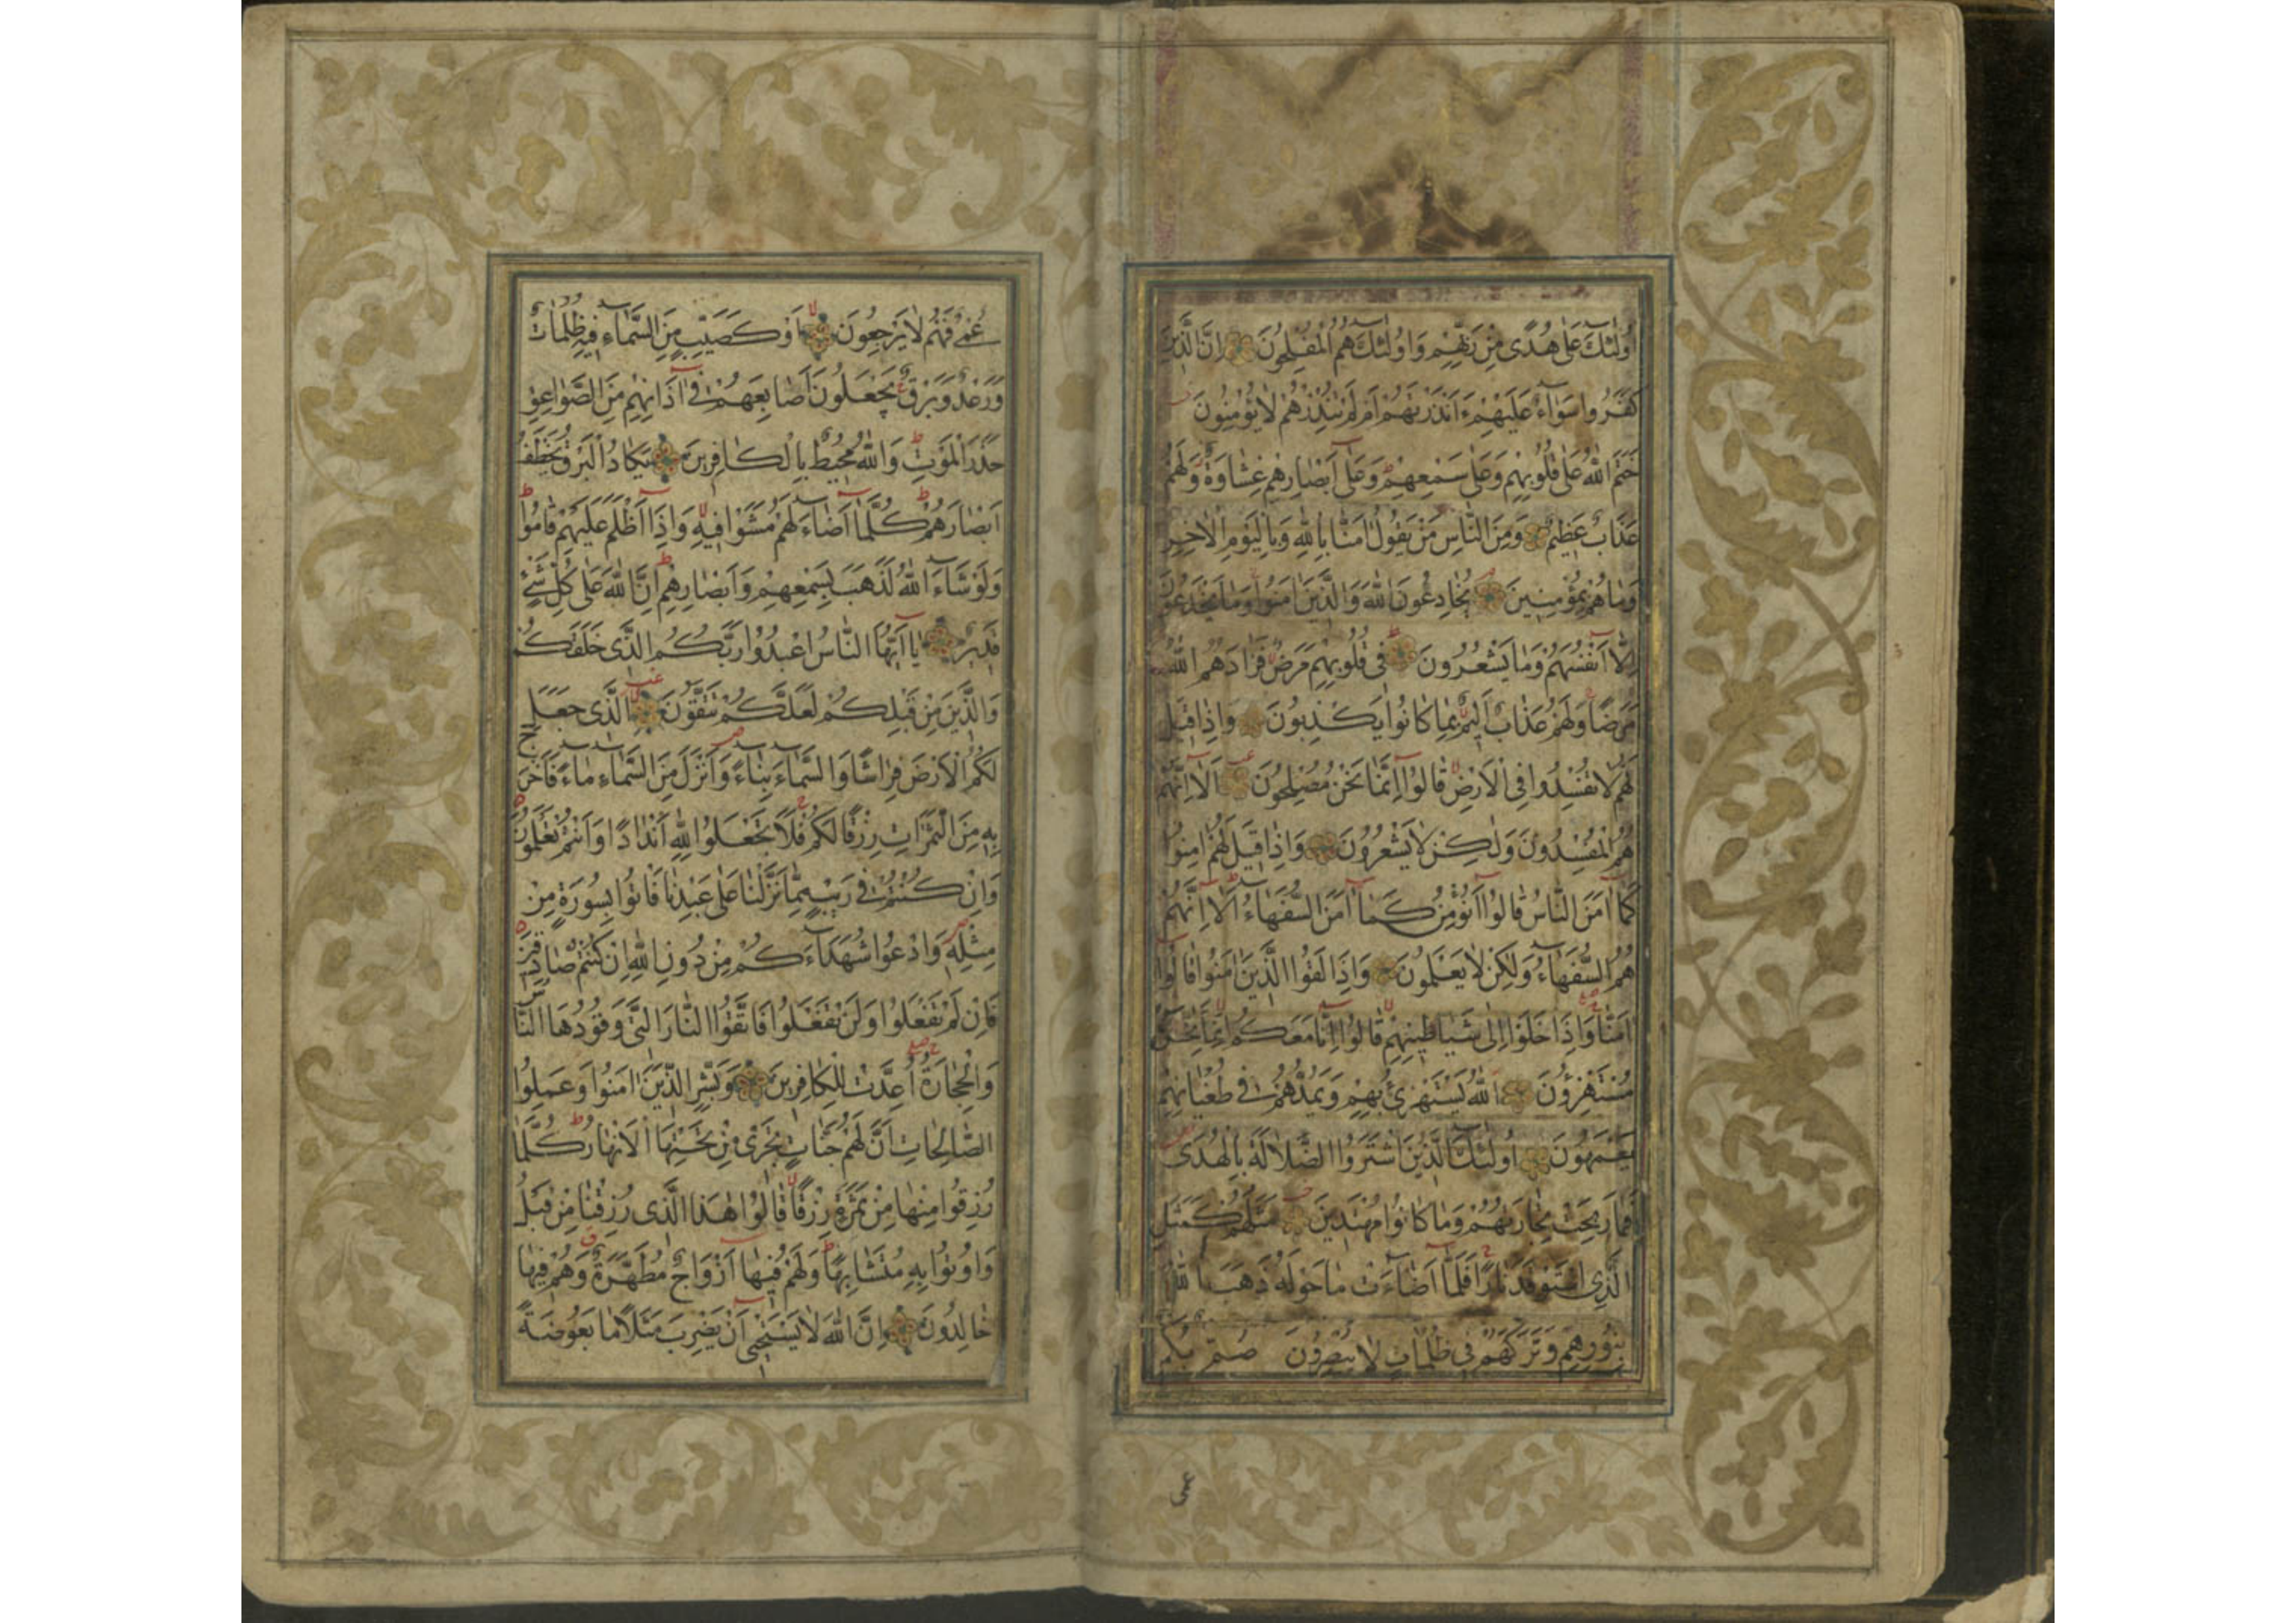 اُولٰئِكَ عَلٰى هُدًى مِنْ رَبِّهِمْ وَاُولٰئِكَ هُمُ الْمُفْلِحُونَ اِنَّ الَّذِينَ
كَفَرُوا سَوَآءٌ عَلَيْهِمْ ءَاَنْذَرْتَهُمْ اَمْ لَمْ تُنْذِرْهُمْ لَا يُؤْمِنُونَ
خَتَمَ اللّٰهُ عَلٰى قُلُوبِهِمْ وَعَلٰى سَمْعِهِمْ وَعَلٰٓى اَبْصَارِهِمْ غِشَاوَةٌ وَلَهُمْ
عَذَابٌ عَظِيمٌ وَمِنَ النَّاسِ مَنْ يَقُولُ اٰمَنَّا بِاللّٰهِ وَبِالْيَوْمِ الْاٰخِرِ
وَمَا هُمْ بِمُؤْمِنِينَ يُخَادِعُونَ اللّٰهَ وَالَّذِينَ اٰمَنُوا وَمَا يَخْدَعُونَ
اِلَّآ اَنْفُسَهُمْ وَمَا يَشْعُرُونَ فِى قُلُوبِهِمْ مَرَضٌ فَزَادَهُمُ اللّٰهُ
مَرَضًا وَلَهُمْ عَذَابٌ اَلِيمٌ بِمَا كَانُوا يَكْذِبُونَ وَاِذَا قِيلَ
لَهُمْ لَا تُفْسِدُوا فِى الْاَرْضِ قَالُوٓا اِنَّمَا نَحْنُ مُصْلِحُونَ اَلَآ اِنَّهُمْ
هُمُ الْمُفْسِدُونَ وَلٰكِنْ لَا يَشْعُرُونَ وَاِذَا قِيلَ لَهُمْ اٰمِنُوا
كَمَآ اٰمَنَ النَّاسُ قَالُوٓا اَنُؤْمِنُ كَمَآ اٰمَنَ السُّفَهَآءُ اَلَآ اِنَّهُمْ
هُمُ السُّفَهَآءُ وَلٰكِنْ لَا يَعْلَمُونَ وَاِذَا لَقُوا الَّذِينَ اٰمَنُوا قَالُوٓا
اٰمَنَّا وَاِذَا خَلَوْا اِلٰى شَيَاطِينِهِمْ قَالُوٓا اِنَّا مَعَكُمْ اِنَّمَا نَحْنُ
مُسْتَهْزِؤُنَ اَللّٰهُ يَسْتَهْزِئُ بِهِمْ وَيَمُدُّهُمْ فِى طُغْيَانِهِمْ
يَعْمَهُونَ اُولٰئِكَ الَّذِينَ اشْتَرَوُا الضَّلَالَةَ بِالْهُدٰى
فَمَا رَبِحَتْ تِجَارَتُهُمْ وَمَا كَانُوا مُهْتَدِينَ مَثَلُهُمْ كَمَثَلِ
الَّذِى اسْتَوْقَدَ نَارًا فَلَمَّآ اَضَآءَتْ مَا حَوْلَهُ ذَهَبَ اللّٰهُ
بِنُورِهِمْ وَتَرَكَهُمْ فِى ظُلُمَاتٍ لَا يُبْصِرُونَ صُمٌّ بُكْمٌ
عُمْىٌ فَهُمْ لَا يَرْجِعُونَ اَوْ كَصَيِّبٍ مِنَ السَّمَآءِ فِيهِ ظُلُمَاتٌ
وَرَعْدٌ وَبَرْقٌ يَجْعَلُونَ اَصَابِعَهُمْ فِىٓ اٰذَانِهِمْ مِنَ الصَّوَاعِقِ
حَذَرَ الْمَوْتِ وَاللّٰهُ مُحِيطٌ بِالْكَافِرِينَ يَكَادُ الْبَرْقُ يَخْطَفُ
اَبْصَارَهُمْ كُلَّمَآ اَضَآءَ لَهُمْ مَشَوْا فِيهِ وَاِذَآ اَظْلَمَ عَلَيْهِمْ قَامُوا
وَلَوْ شَآءَ اللّٰهُ لَذَهَبَ بِسَمْعِهِمْ وَاَبْصَارِهِمْ اِنَّ اللّٰهَ عَلٰى كُلِّ شَىْءٍ
قَدِيرٌ يَآ اَيُّهَا النَّاسُ اعْبُدُوا رَبَّكُمُ الَّذِى خَلَقَكُمْ
وَالَّذِينَ مِنْ قَبْلِكُمْ لَعَلَّكُمْ تَتَّقُونَ اَلَّذِى جَعَلَ
لَكُمُ الْاَرْضَ فِرَاشًا وَالسَّمَآءَ بِنَآءً وَاَنْزَلَ مِنَ السَّمَآءِ مَآءً فَاَخْرَجَ
بِهِ مِنَ الثَّمَرَاتِ رِزْقًا لَكُمْ فَلَا تَجْعَلُوا لِلّٰهِ اَنْدَادًا وَاَنْتُمْ تَعْلَمُونَ
وَاِنْ كُنْتُمْ فِى رَيْبٍ مِمَّا نَزَّلْنَا عَلٰى عَبْدِنَا فَاْتُوا بِسُورَةٍ مِنْ
مِثْلِهِ وَادْعُوا شُهَدَآءَكُمْ مِنْ دُونِ اللّٰهِ اِنْ كُنْتُمْ صَادِقِينَ
فَاِنْ لَمْ تَفْعَلُوا وَلَنْ تَفْعَلُوا فَاتَّقُوا النَّارَ الَّتِى وَقُودُهَا النَّاسُ
وَالْحِجَارَةُ اُعِدَّتْ لِلْكَافِرِينَ وَبَشِّرِ الَّذِينَ اٰمَنُوا وَعَمِلُوا
الصَّالِحَاتِ اَنَّ لَهُمْ جَنَّاتٍ تَجْرِى مِنْ تَحْتِهَا الْاَنْهَارُ كُلَّمَا
رُزِقُوا مِنْهَا مِنْ ثَمَرَةٍ رِزْقًا قَالُوا هٰذَا الَّذِى رُزِقْنَا مِنْ قَبْلُ
وَاُوتُوا بِهِ مُتَشَابِهًا وَلَهُمْ فِيهَآ اَزْوَاجٌ مُطَهَّرَةٌ وَهُمْ فِيهَا
خَالِدُونَ اِنَّ اللّٰهَ لَا يَسْتَحْيِىٓ اَنْ يَضْرِبَ مَثَلًا مَا بَعُوضَةً